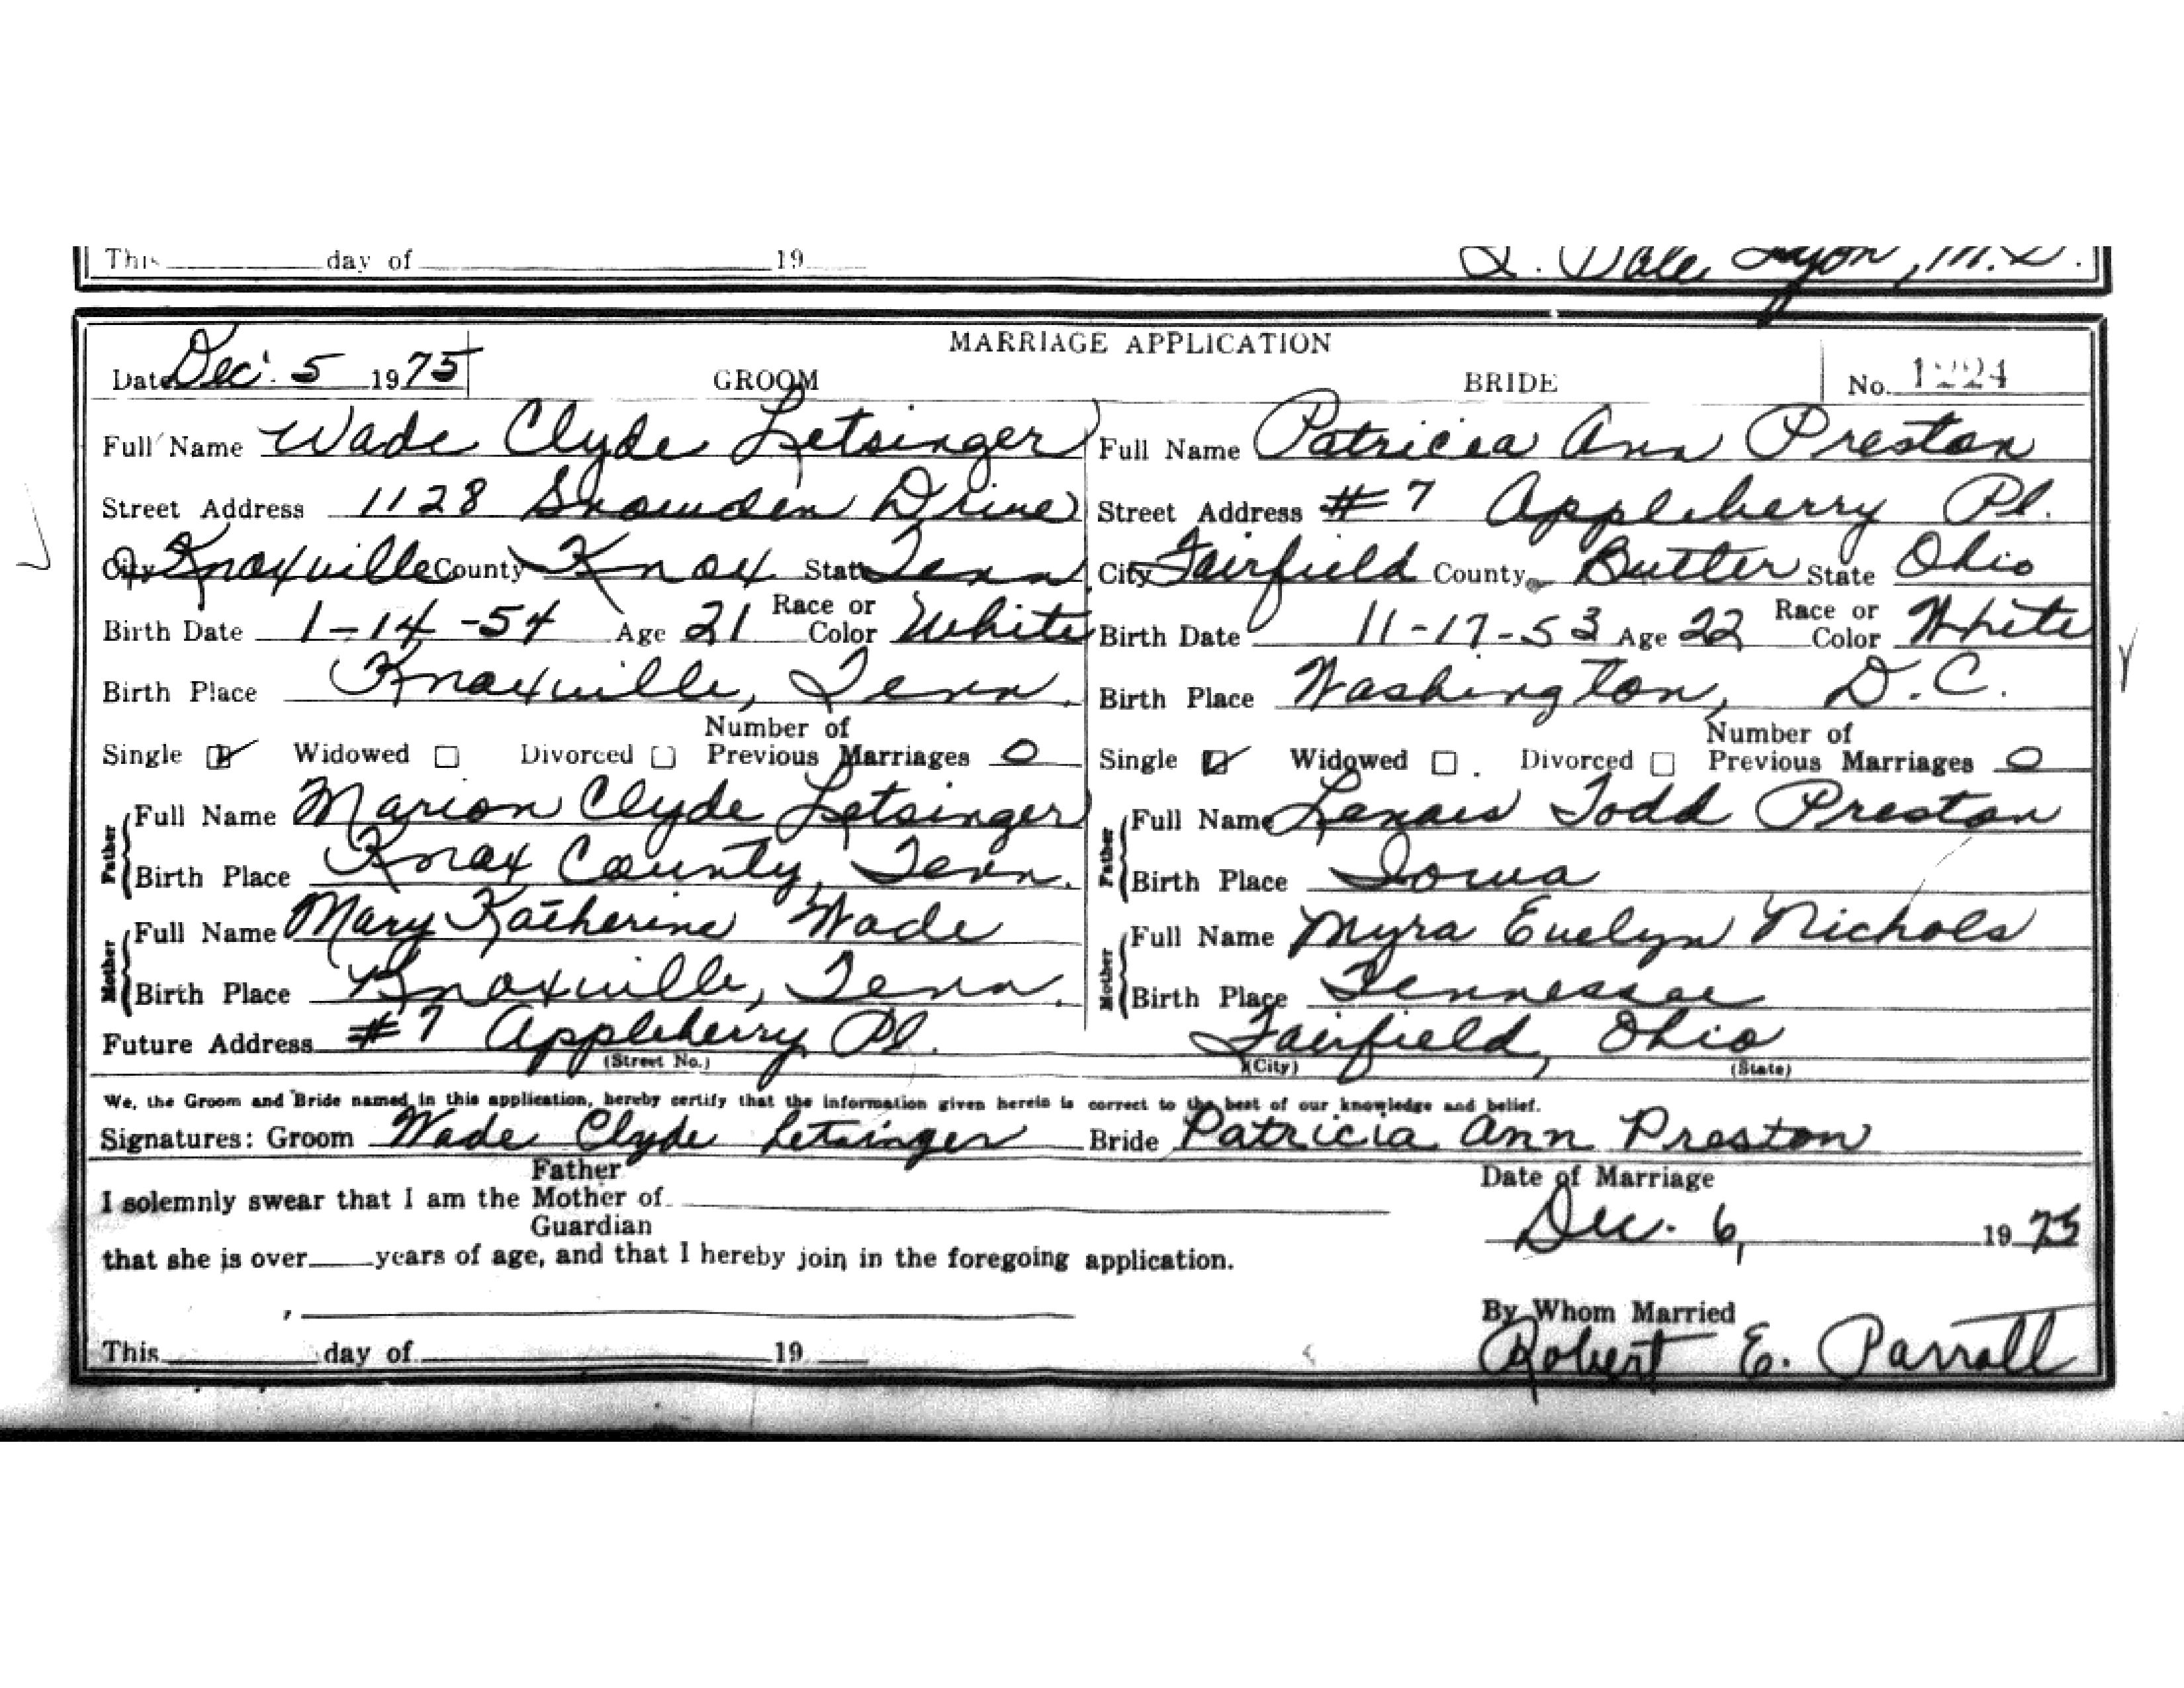 This day of 19 L. Dale Lyon, M.D.
MARRIAGE APPLICATION
Date Dec. 5 1975 GROOM BRIDE No. 1224
Full Name Wade Clyde Letsinger Full Name Patricia Ann Preston
Street Address 1128 Snowden Drive Street Address #7 Appleberry Pl.
City Knoxville County Knox State Tenn. City Fairfield County Butler State Ohio
Birth Date 1-14-54 Age 21 Race or Color White Birth Date 11-17-53 Age 22 Race or Color White
Birth Place Knoxville, Tenn. Birth Place Washington, D.C.
Single Widowed Divorced Number of Previous Marriages 0 Single Widowed Divorced Number of Previous Marriages 0
Father Full Name Marion Clyde Letsinger Father Full Name Todd Preston
Birth Place Knox County, Tenn. Birth Place Iowa
Mother Full Name Mary Katherine Wade Mother Full Name Myra Evelyn Nichols
Birth Place Knoxville, Tenn. Birth Place Tennessee
Future Address #7 Appleberry Pl. Fairfield, Ohio
(Street No.) (City) (State)
We, the Groom and Bride named in this application, hereby certify that the information given herein is correct to the best of our knowledge and belief.
Signatures: Groom Wade Clyde Letsinger Bride Patricia Ann Preston
Father Date of Marriage
I solemnly swear that I am the Mother of
Guardian Dec. 6, 1975
that she is over years of age, and that I hereby join in the foregoing application.
By Whom Married
This day of 19 Robert E. Parrott